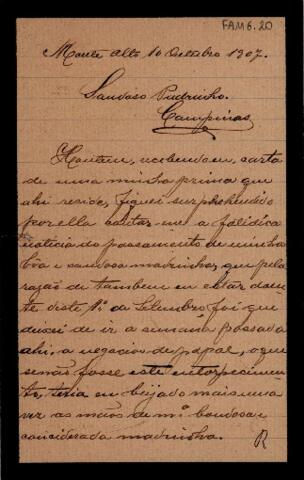 FAM 6.20
Monte Alto 10 Outubro 1907.
Saudoso Padrinho.
Campinas
Hontem, recebendo eu, carta
de uma minha prima que
ahi reside, fiquei surprehendido
por ella contar-me a
noticia do passamento de minha
bôa e saudosa madrinha, que pela
razão de tambem eu estar doen-
te deste 1º de Setembro, foi que
deixei de ir a semana passada
ahi, a negocios de papae, o que
se não fosse este entorpecimen-
to, teria eu beijado mais uma
vez as mãos de mª bondosa e
conciderada madrinha.
R